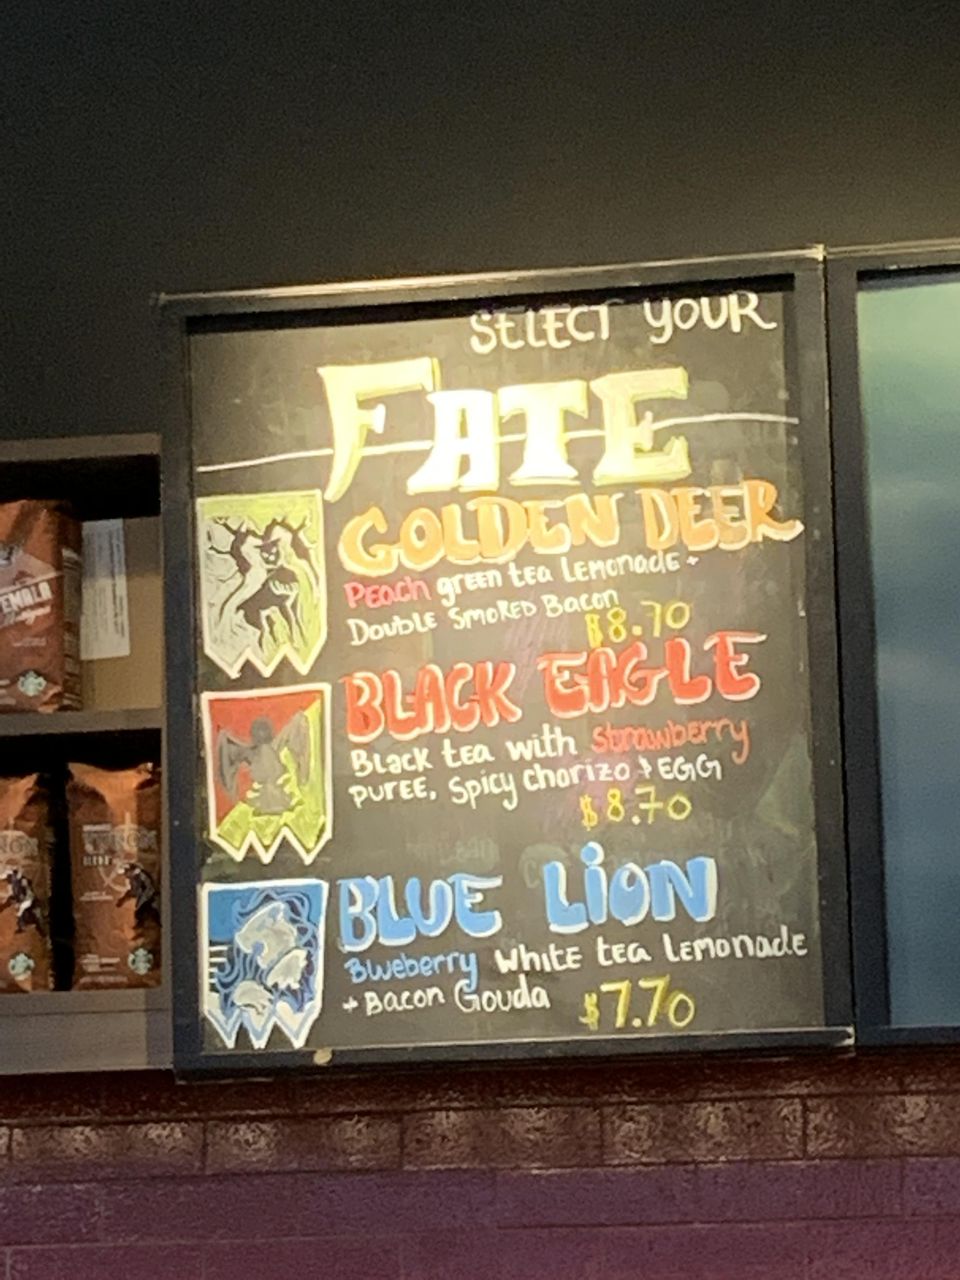 SELECT YOUR
FATE
GOLDEN DEER
Peach green tea Lemonade +
Double Smoked Bacon
$8.70
BLACK EAGLE
Black tea with strawberry
PUREE, Spicy chorizo + EGG
$8.70
BLUE LiON
Blueberry White tea Lemonade
+ Bacon Gouda $7.70